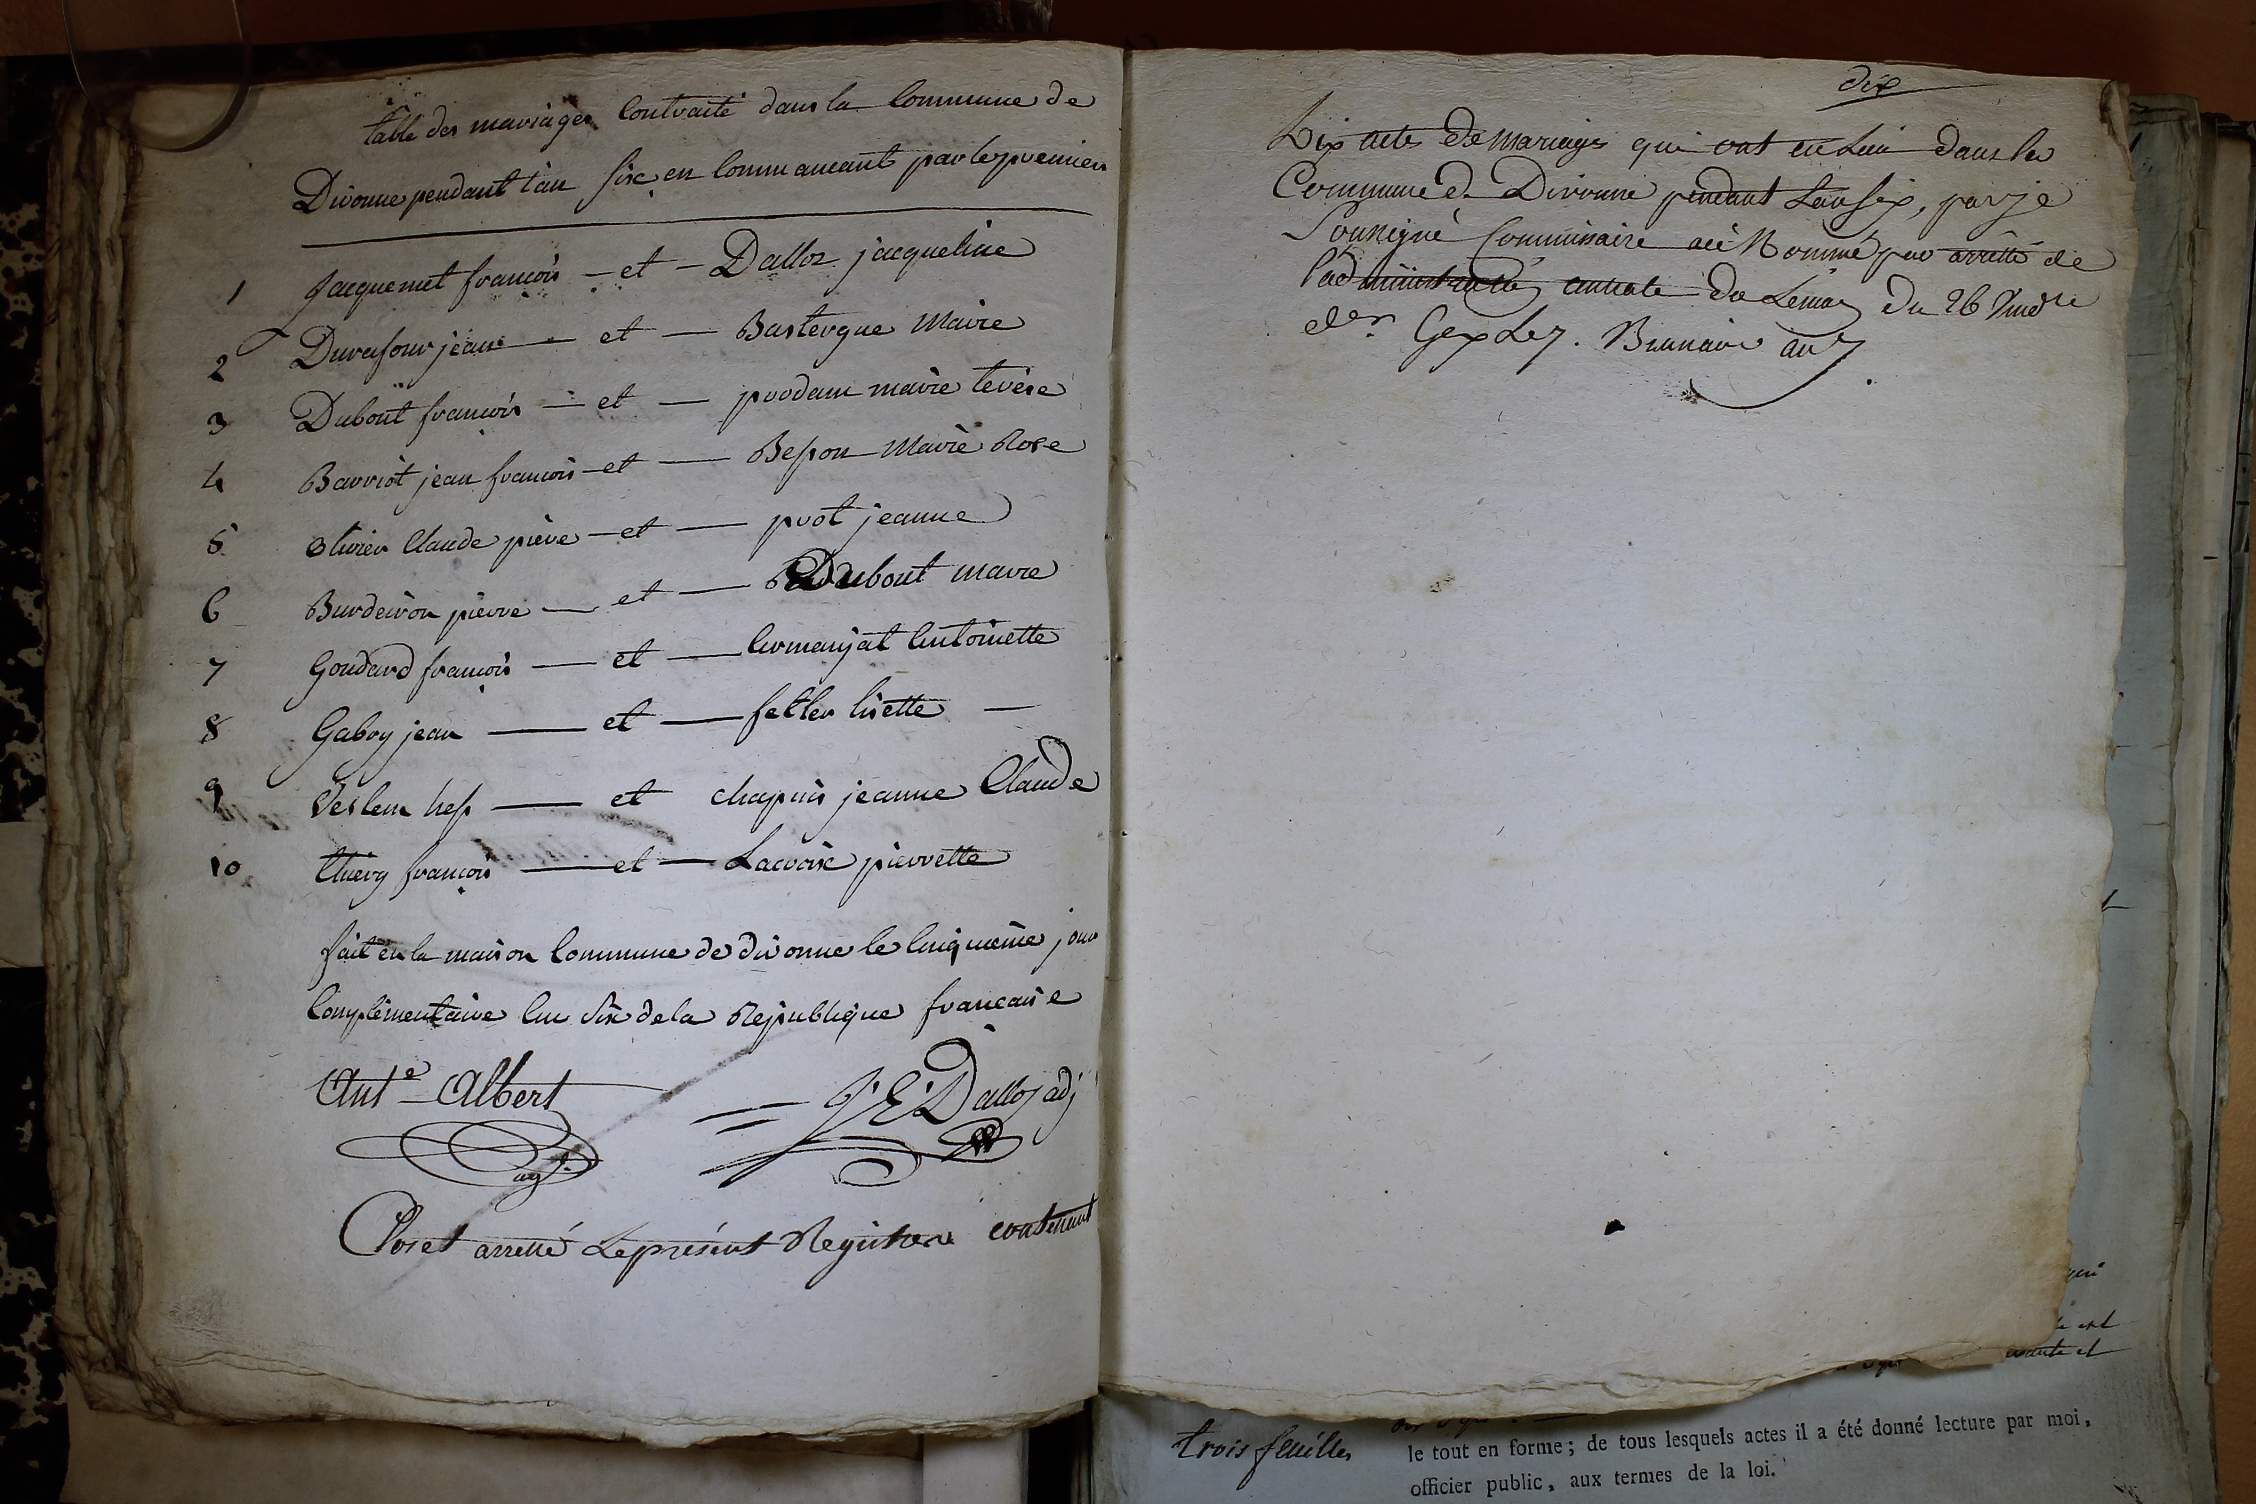 table des mariages Contracté dans la Commune de
Divonne pendant l'an six en Commançant par les premiers
1 Jacquemet francois - et - Dalloz jacqueline
2 Durafour jean et — Bastergue Marie
3 Dubout francois - et — prodam marie terèse
4 Barriot jean francois - et — Besson Marie Rose
5 olivier Claude pière - et — prot jeanne
6 Burdeiron pierre — et — Dubout marie
7 Goudard francois — et — Armanjat Antoinette
8 Gaboy jean — et — fetler lisette —
9 hess — et chapuis jeanne Claude
10 thiery francois — et — Lacroix pierrette
fait en la maison Commune de divonne le Cinquième jour
Complémentaire An Six de la République francaise
Ant.e Albert J. E. Dalloz adj
agt.
Clos et arretté Le présent Registre contenant
dix
Dix actes de mariages qui ont eu Lieu dans la
Commune de Divonne pendant L'an six, par je
Sousigné Commissaire ace Nommé par arrêtté de
l'administration centrale du Leman du 26 Vmdre
der. Gex Le 7. Brumaire an 7
trois feuilles
le tout en forme; de tous lesquels actes il a été donné lecture par moi,
officier public, aux termes de la loi.